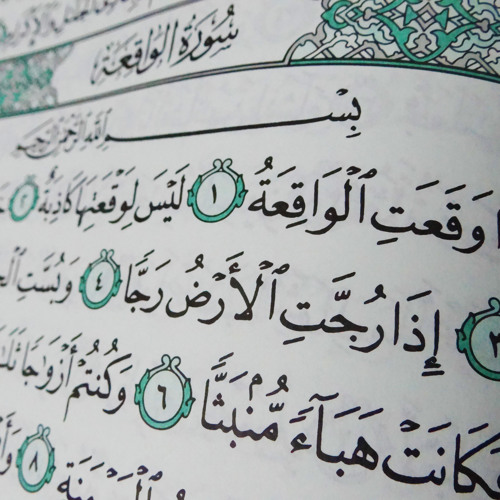 سُورَةُ الوَاقِعَةِ
بِسْمِ اللَّهِ الرَّحْمَٰنِ الرَّحِيمِ
وَقَعَتِ ٱلْوَاقِعَةُ ١ لَيْسَ لِوَقْعَتِهَا كَاذِبَةٌ ٢
٣ إِذَا رُجَّتِ ٱلْأَرْضُ رَجًّا ٤ وَبُسَّتِ
فَكَانَتْ هَبَآءً مُّنۢبَثًّا ٦ وَكُنتُمْ أَزْوَٰجًا
ٱلْمَيْمَنَةِ ٨